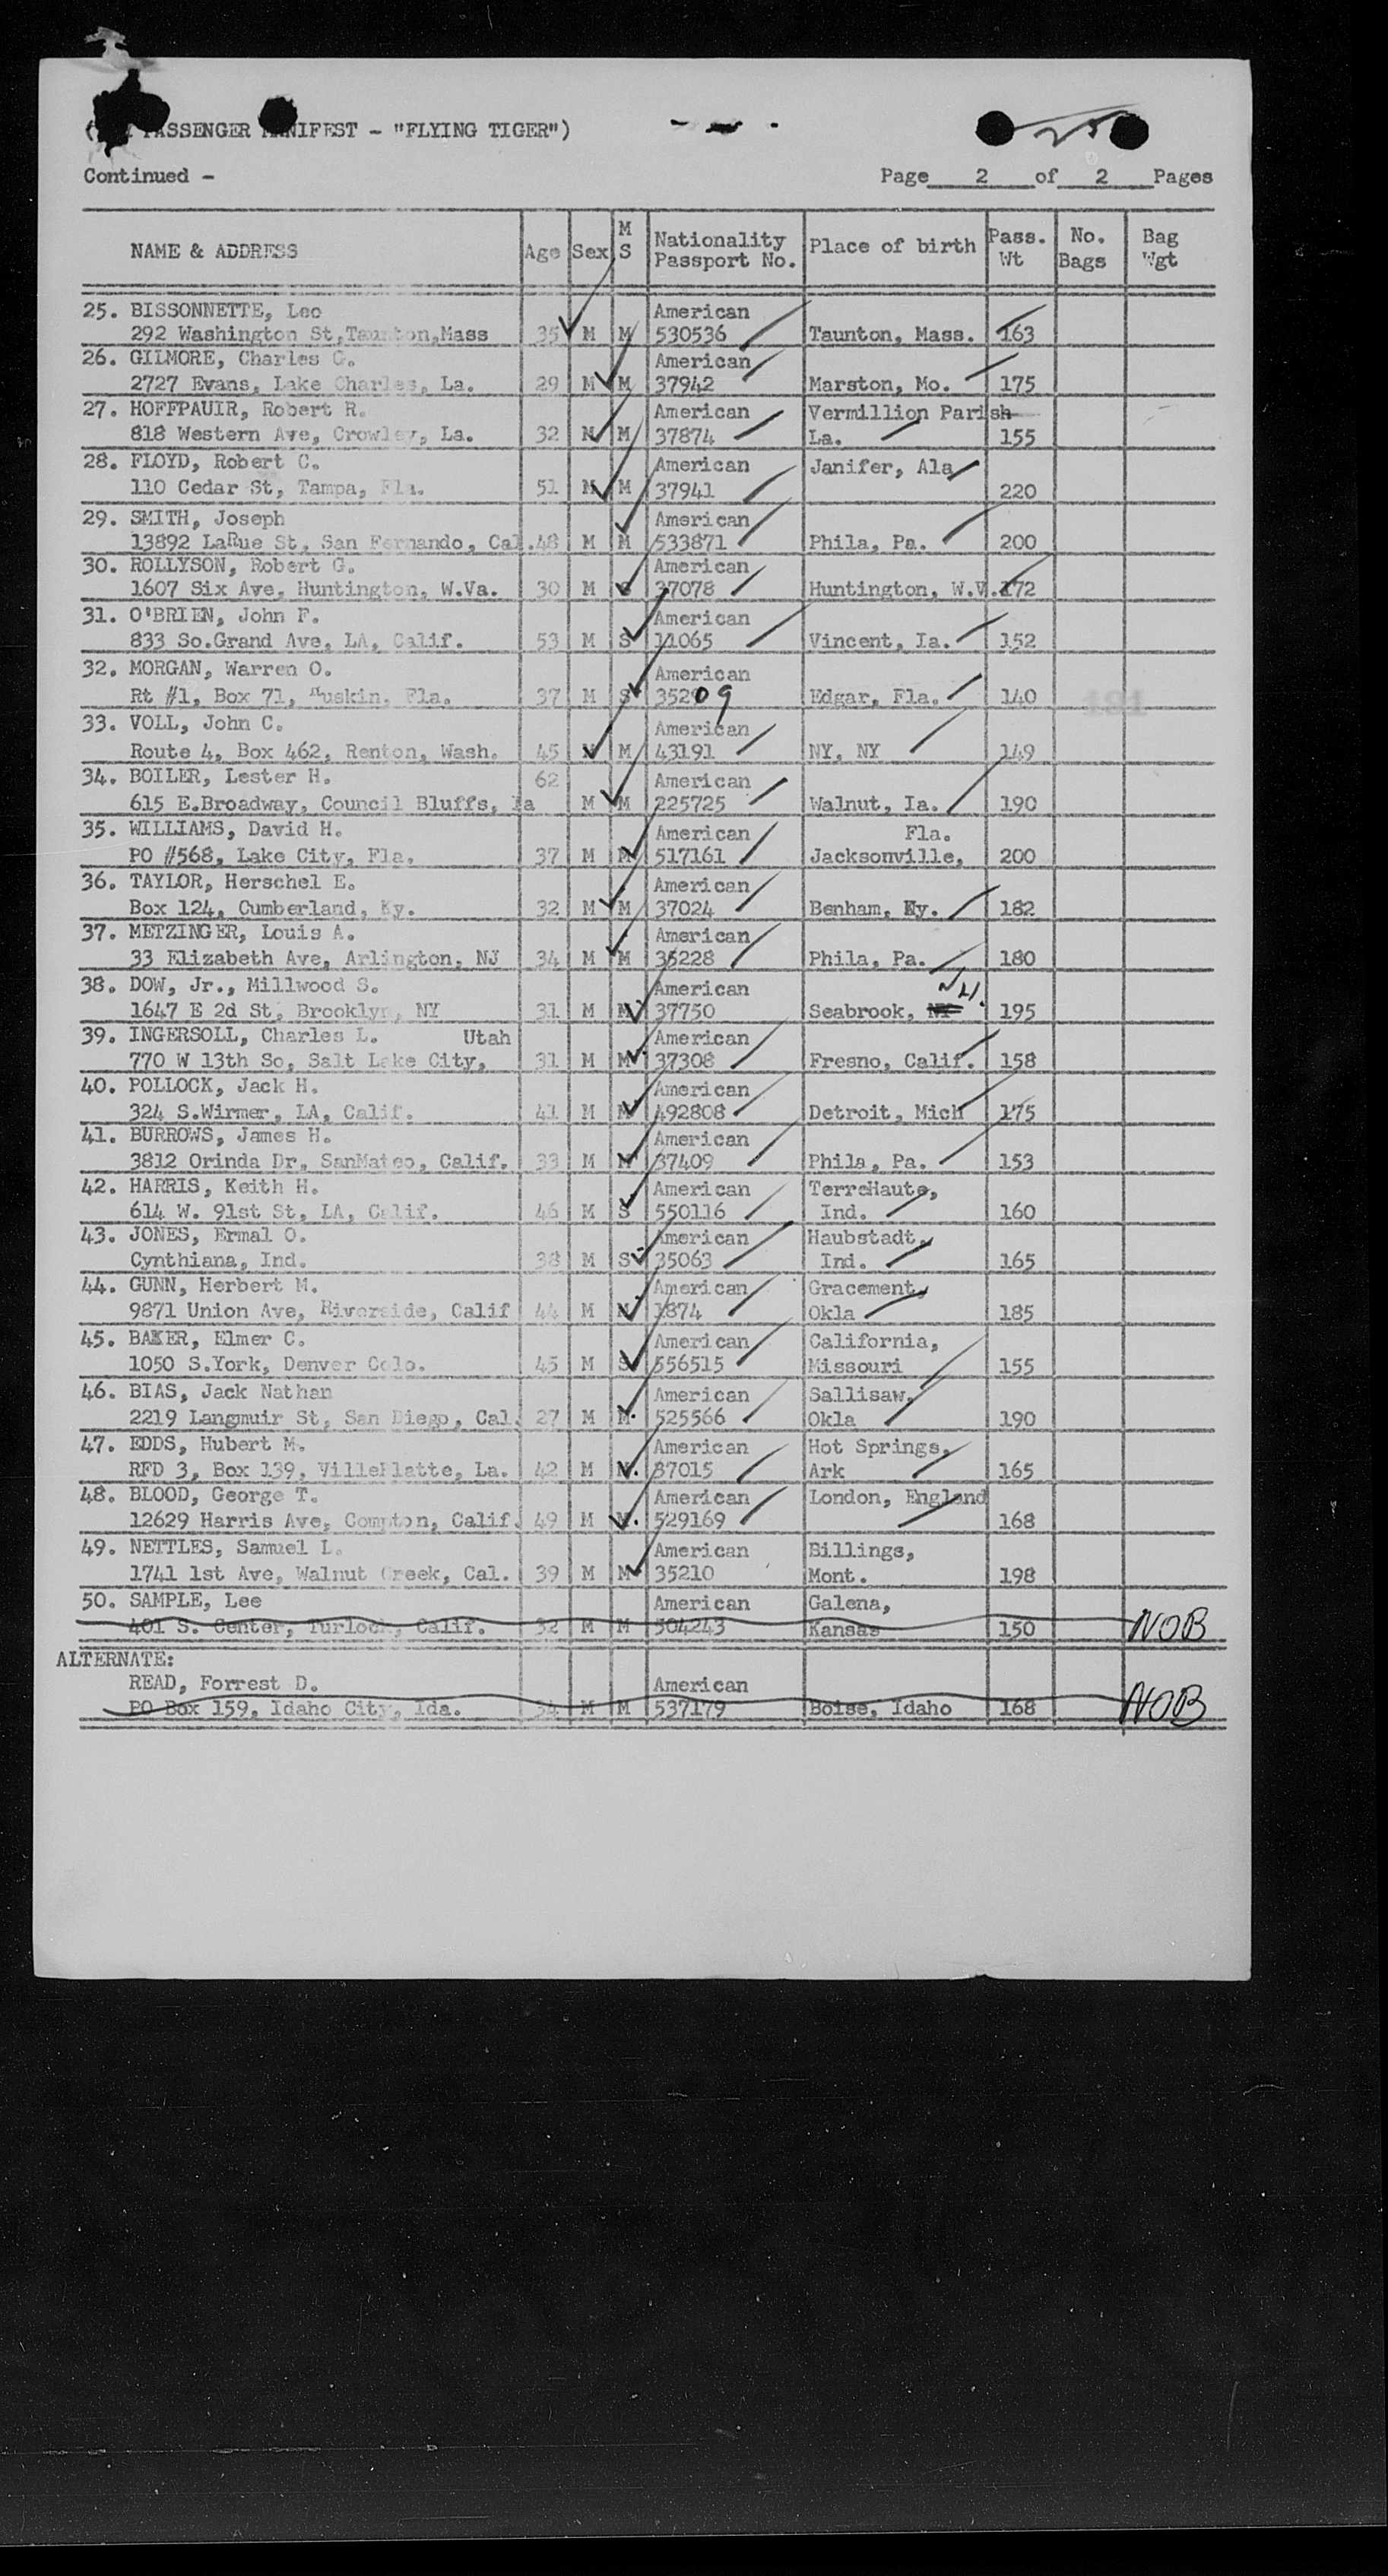 PASSENGER MANIFEST - "FLYING TIGER")
25
Continued -
Page 2 of 2 Pages
NAME & ADDRESS Age Sex M S Nationality Passport No. Place of birth Pass. Wt No. Bags Bag Wgt
25. BISSONNETTE, Leo American
292 Washington St,Taunton,Mass 35 M M 530536 Taunton, Mass. 163
26. GILMORE, Charles G. American
2727 Evans, Lake Charles, La. 29 M M 37942 Marston, Mo. 175
27. HOFFPAUIR, Robert R. American Vermillion Parish
818 Western Ave, Crowley, La. 32 M M 37874 La. 155
28. FLOYD, Robert C. American Janifer, Ala
110 Cedar St, Tampa, Fla. 51 M M 37941 220
29. SMITH, Joseph American
13892 LaRue St, San Fernando, Cal. 48 M M 533871 Phila, Pa. 200
30. ROLLYSON, Robert G. American
1607 Six Ave, Huntington, W.Va. 30 M S 37078 Huntington, W.V. 172
31. O'BRIEN, John F. American
833 So.Grand Ave, LA, Calif. 53 M S 11065 Vincent, Ia. 152
32. MORGAN, Warren O. American
Rt #1, Box 71, Ruskin, Fla. 37 M S 35209 Edgar, Fla. 140
33. VOLL, John C. American
Route 4, Box 462, Renton, Wash. 45 M M 43191 NY, NY 149
34. BOILER, Lester H. 62 American
615 E.Broadway, Council Bluffs, Ia M M 225725 Walnut, Ia. 190
35. WILLIAMS, David H. American Fla.
PO #568, Lake City, Fla. 37 M M 517161 Jacksonville, 200
36. TAYLOR, Herschel E. American
Box 124, Cumberland, Ky. 32 M M 37024 Benham, Ky. 182
37. METZINGER, Louis A. American
33 Elizabeth Ave, Arlington, NJ 34 M M 35228 Phila, Pa. 180
38. DOW, Jr., Millwood S. American NH.
1647 E 2d St, Brooklyn, NY 31 M M 37750 Seabrook, NY 195
39. INGERSOLL, Charles L. Utah American
770 W 13th So, Salt Lake City, 31 M M 37308 Fresno, Calif. 158
40. POLLOCK, Jack H. American
324 S.Wirmer, LA, Calif. 41 M M 492808 Detroit, Mich 175
41. BURROWS, James H. American
3812 Orinda Dr, SanMateo, Calif. 33 M M 37409 Phila, Pa. 153
42. HARRIS, Keith H. American TerreHaute,
614 W. 91st St, LA, Calif. 46 M S 550116 Ind. 160
43. JONES, Ermal O. American Haubstadt,
Cynthiana, Ind. 38 M S 35063 Ind. 165
44. GUNN, Herbert M. American Gracement,
9871 Union Ave, Riverside, Calif 44 M M 1874 Okla 185
45. BAKER, Elmer C. American California,
1050 S.York, Denver Colo. 45 M S 556515 Missouri 155
46. BIAS, Jack Nathan American Sallisaw,
2219 Langmuir St, San Diego, Cal. 27 M M 525566 Okla 190
47. EDDS, Hubert M. American Hot Springs,
RFD 3, Box 139, VillePlatte, La. 42 M M 37015 Ark 165
48. BLOOD, George T. American London, England
12629 Harris Ave, Compton, Calif. 49 M M 529169 168
49. NETTLES, Samuel L. American Billings,
1741 1st Ave, Walnut Creek, Cal. 39 M M 35210 Mont. 198
50. SAMPLE, Lee American Galena,
401 S. Center, Turlock, Calif. 32 M M 504243 Kansas 150 NOB
ALTERNATE:
READ, Forrest D. American
PO Box 159, Idaho City, Ida. 54 M M 537179 Boise, Idaho 168 NOB